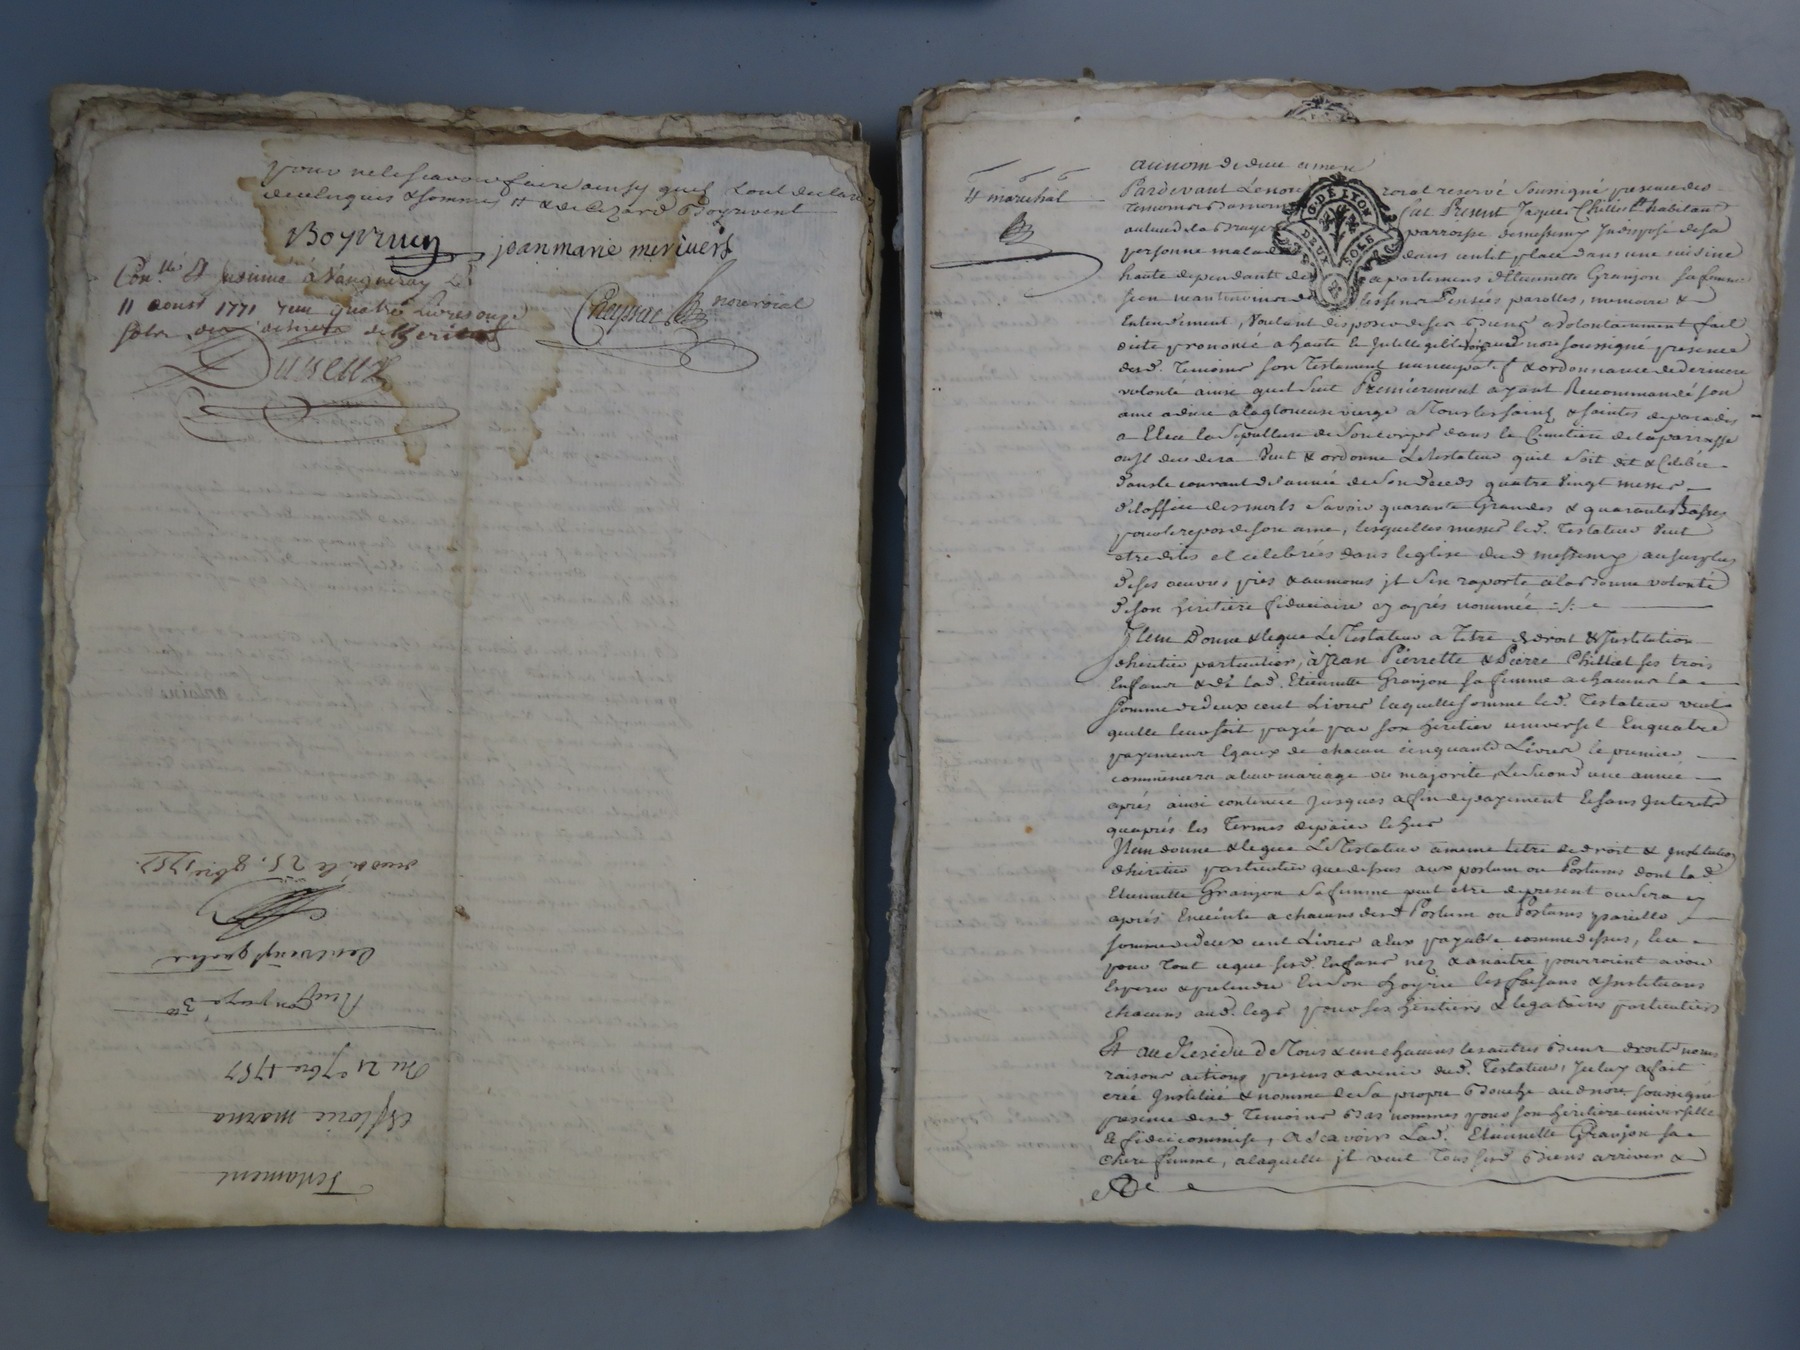 pour ne le scavoir faire ainsy quil l'ont declaré
de ce enquis & sommés ## & de Cizard Boyrivent
Boyriven jean marie merivers
Con.llé & insinué à Vaugneray Le
11 aoust 1771 reçu quatre Livres onze
sols
Dureux
Cheyssac no.re roïal
rendû le 25. 8bre 1757.
Cent vingt quatre
Du 21 7bre 1757
marna
Testament
## marechal
au nom de dieu amen
Pardevant Le no.re royal reservé soussigné presence des
temoins bas nom fut Present Jaques Chilliet ## habitant
au lieu de la Bruyere parroisse de messimy Indisposé de sa
personne malade dans un lit placé dans une cuisine
haute dependante de apartemens d'Etiennette Granjon sa femme
sein neantmoins de ses sens Pensées parolles, memoire &
Entendement, Voulant disposer de ses Biens a volontairement fait
dicté prononcé a haute & Intelligible voix aud. no.re soussigné presence
desd. Temoins son Testament nuncupatif & ordonnance de derniere
volonté ainsi quil suit Premierement ayant Recommandé son
ame a dieu a la glorieuse vierge a tous les saints & saintes de paradis
a Eleu la sepulture de son corps dans le Cimetiere de la parroisse
ou Il decedera Veut & ordonne Le testateur quil soit dit & Celebré
dans le courant de l'année de son Deceds quatre vingt messes
de l'office des morts savoir quarante Grandes & quarantes Basses
pour le repos de son ame, lesquelles messes led. Testateur Veut
etre dites et celebrées dans l'eglise dud messimy au surplus
de ses oeuvres pies & aumones jl s'en raporte a la bonne volonté
de son heritiere fiduciaire cy aprés nommée
Item Donne & legue Le Testateur a Titre de droit & Institution
dheritier particulier, à Jean Pierrette & Pierre Chilliet ses trois
Enfans & de lad. Etiennette Granjon sa femme a chacun la
somme de deux cent Livres laquelle somme led. Testateur veut
quelle leur soit payée par son heritier universel En quatre
payemens Egaux de chacun cinquante Livres le premier
commencera a leur mariage ou majorité, Le second une année
aprés ainsi continué Jusques a fin de payement & sans Interets
qu'aprés les Termes de païer echus
Item donne & legue Le Testateur a meme titre de droit & Institution
dheritier particulier que dessus aux postum ou Postums dont lad
Etiennette Granjon sa femme peut etre de present ou sera cy
aprés Enceinte a chacun desd Postum ou Postums pareille
somme de deux cent Livres a Eux payable comme dessus, & ce
pour Tout ce que sesd. Enfans nez & a naitre pourroient avoir
Esperer & pretendre En son hoyrie les faisans & Instituans
chacuns aud. legs pour ses heritiers & legataires particuliers
Et au Residu de Tous & un chacuns les autres Biens droits noms
raisons actions presens & avenir dud. Testateur, Iceluy a fait
créé Institué & nommé de sa propre Bouche aud no.re soussigné
presence desd Temoins Bas nommés pour son heritiere universelle
& fideicommise, a scavoir Lad. Etiennette Granjon sa
chere femme, a laquelle jl veut Tous sesd Biens arriver &